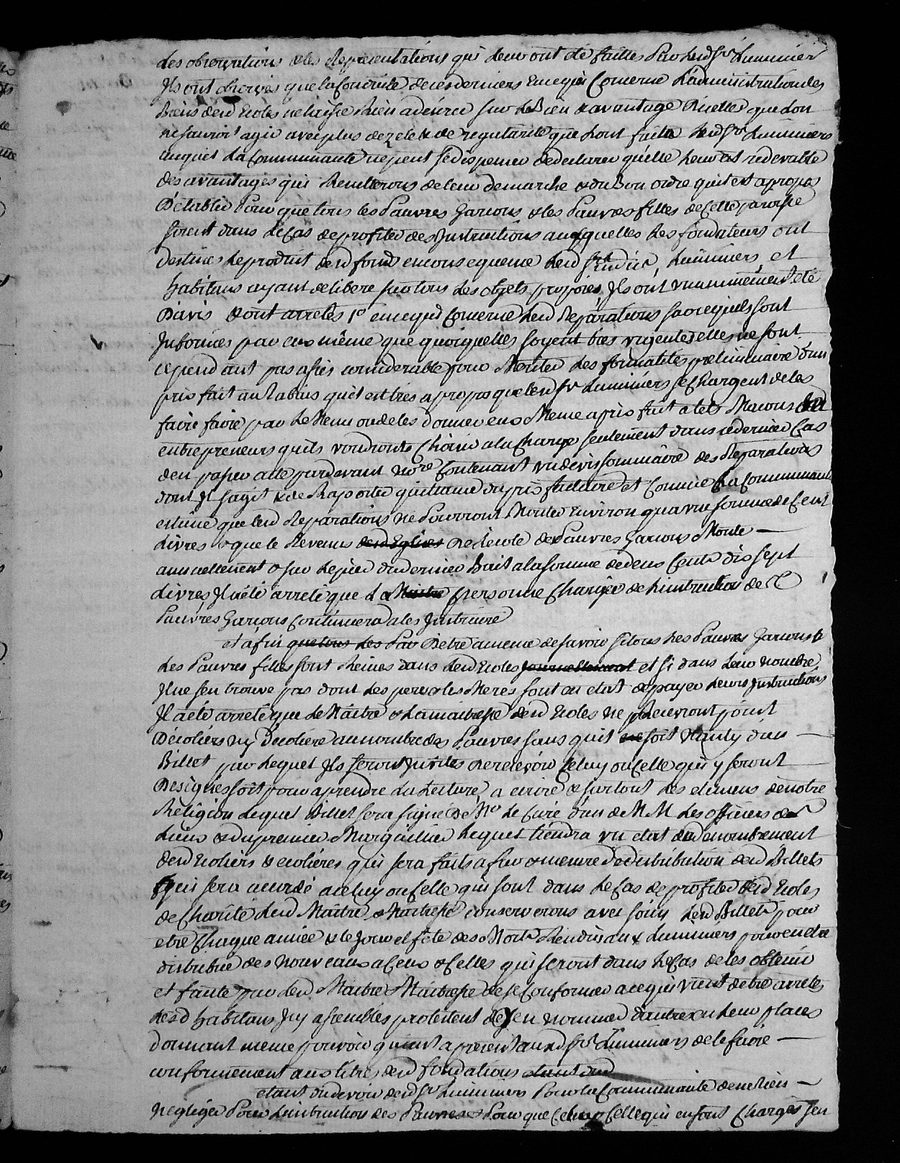 des observations & les Representations qui leur ont été faittes par lesd. Srs Luminiers
Ils ont observés que la conduite de ces derniers en ce qui Concerne L'administration des
Biens desd Ecoles ne laisse Rien a desirer sur le Bien & avantage que l'on
ne sauroit agir avec plus de zele & de regularité que l'ont fait lesd Srs Luminiers
auquel la Communauté ne peut se dispenser de declarer qu'elle leur est redevable
des avantages qui Resulterons de leur demarche & du Bon ordre qu'il est apropos
D'etablir Pour que tous les Pauvres Garcons & les Pauvres filles de Cette paroisse
soient dans le Cas de profiter des Instructions auxquelles les fondateurs ont
destinés le produit desd fonds en consequence lesd Sindic, Luminiers, et
habitans ayant deliberé sur tous les objets proposés, Ils ont unanimement été
D'avis & ont arretés 1° en ce qui Concerne lesd Reparations sur ce qu'ils sont
Informés par eux même que quoiquelles soyent très urgentes elles ne sont
cependant pas assés considerable pour Meriter des formalités preliminaire d'un
prix fait au Rabais qu'il est très apropos que lesd Srs Luminiers se chargent de les
faire faire par Eux Memes ou de les donner eux Meme a prix fait a tels Macons
entrepreneurs qu'ils voudront Choisir a la Charge seulement dans ce dernier Cas
d'en passer acte pardevant Nore Contenant un devis sommaire des Reparations
dont Il s'agit & de Raporter quittance du prix faitaire et Comme la Communauté
estime que lesd Reparations ne Pourront Monter Environ qu'a une somme de Cent
Livres & que le Revenu desd Eglises de l'ecole des Pauvres Garcons Monte
annuellement & sur le pied du dernier Bail a la somme de deux Cents dix sept
Livres Il a été arreté que La Maitre personne Chargée de l'instruction de ces
Pauvres Garcons Continuera a les Instruire
et afin que tous les Par D'etre a meme de savoir si tous les Pauvres Garcons &
les Pauvres filles sont Reunies dans lesd Ecoles journellement et si dans leur nombre
Il ne s'en trouve pas dont les peres & les Meres sont en etat de payer leurs Instructions
Il a été arreté que le Maitre & la maitresse desd Ecoles ne Recevront point
D'écoliers ny D'ecoliere au nombre des Pauvres sans qu'il ne soit Muny d'un
Billet par lequel Ils seront Invités de recevoir Celuy ou Celle qui y seront
Designés soit pour aprendre la Lecture a ecrire & surtout les elemens de notre
Religion lequel Billet sera signé de Mr le Curé d'un de M.M. les officiers des
Lieux & du premier Marguillier lequel tiendra un etat de denombrement
desd Ecoliers & ecolieres qui sera fait a fur & mesure de la distribution desd Billets
Qui sera accordé a celuy ou Celle qui sont dans le Cas de profiter desd Ecoles
de Charité lesd Maitre & Maitresse conserverons avec soin lesd Billets pour
etre Chaque année & le Jour et fete des Morts Rendus aux Luminiers pour en etre
distribué des Nouveaux a Ceux & Celles qui seront dans le Cas de les obtenir
et faute par lesd Maitre & Maitresse de se Conformer a ce qui vient d'etre arreté
lesd habitans Icy assemblés protestent de en nommer d'autres en leur places
donnant meme pouvoir quant a present auxd Srs Luminiers de le faire
conformement aux titres desd fondations
etant du devoir desd Srs Luminiers & Pour la Communauté de ne rien
Negliger Pour L'instruction des Pauvres & Pour que Celuy & Celle qui en sont Chargés s'en